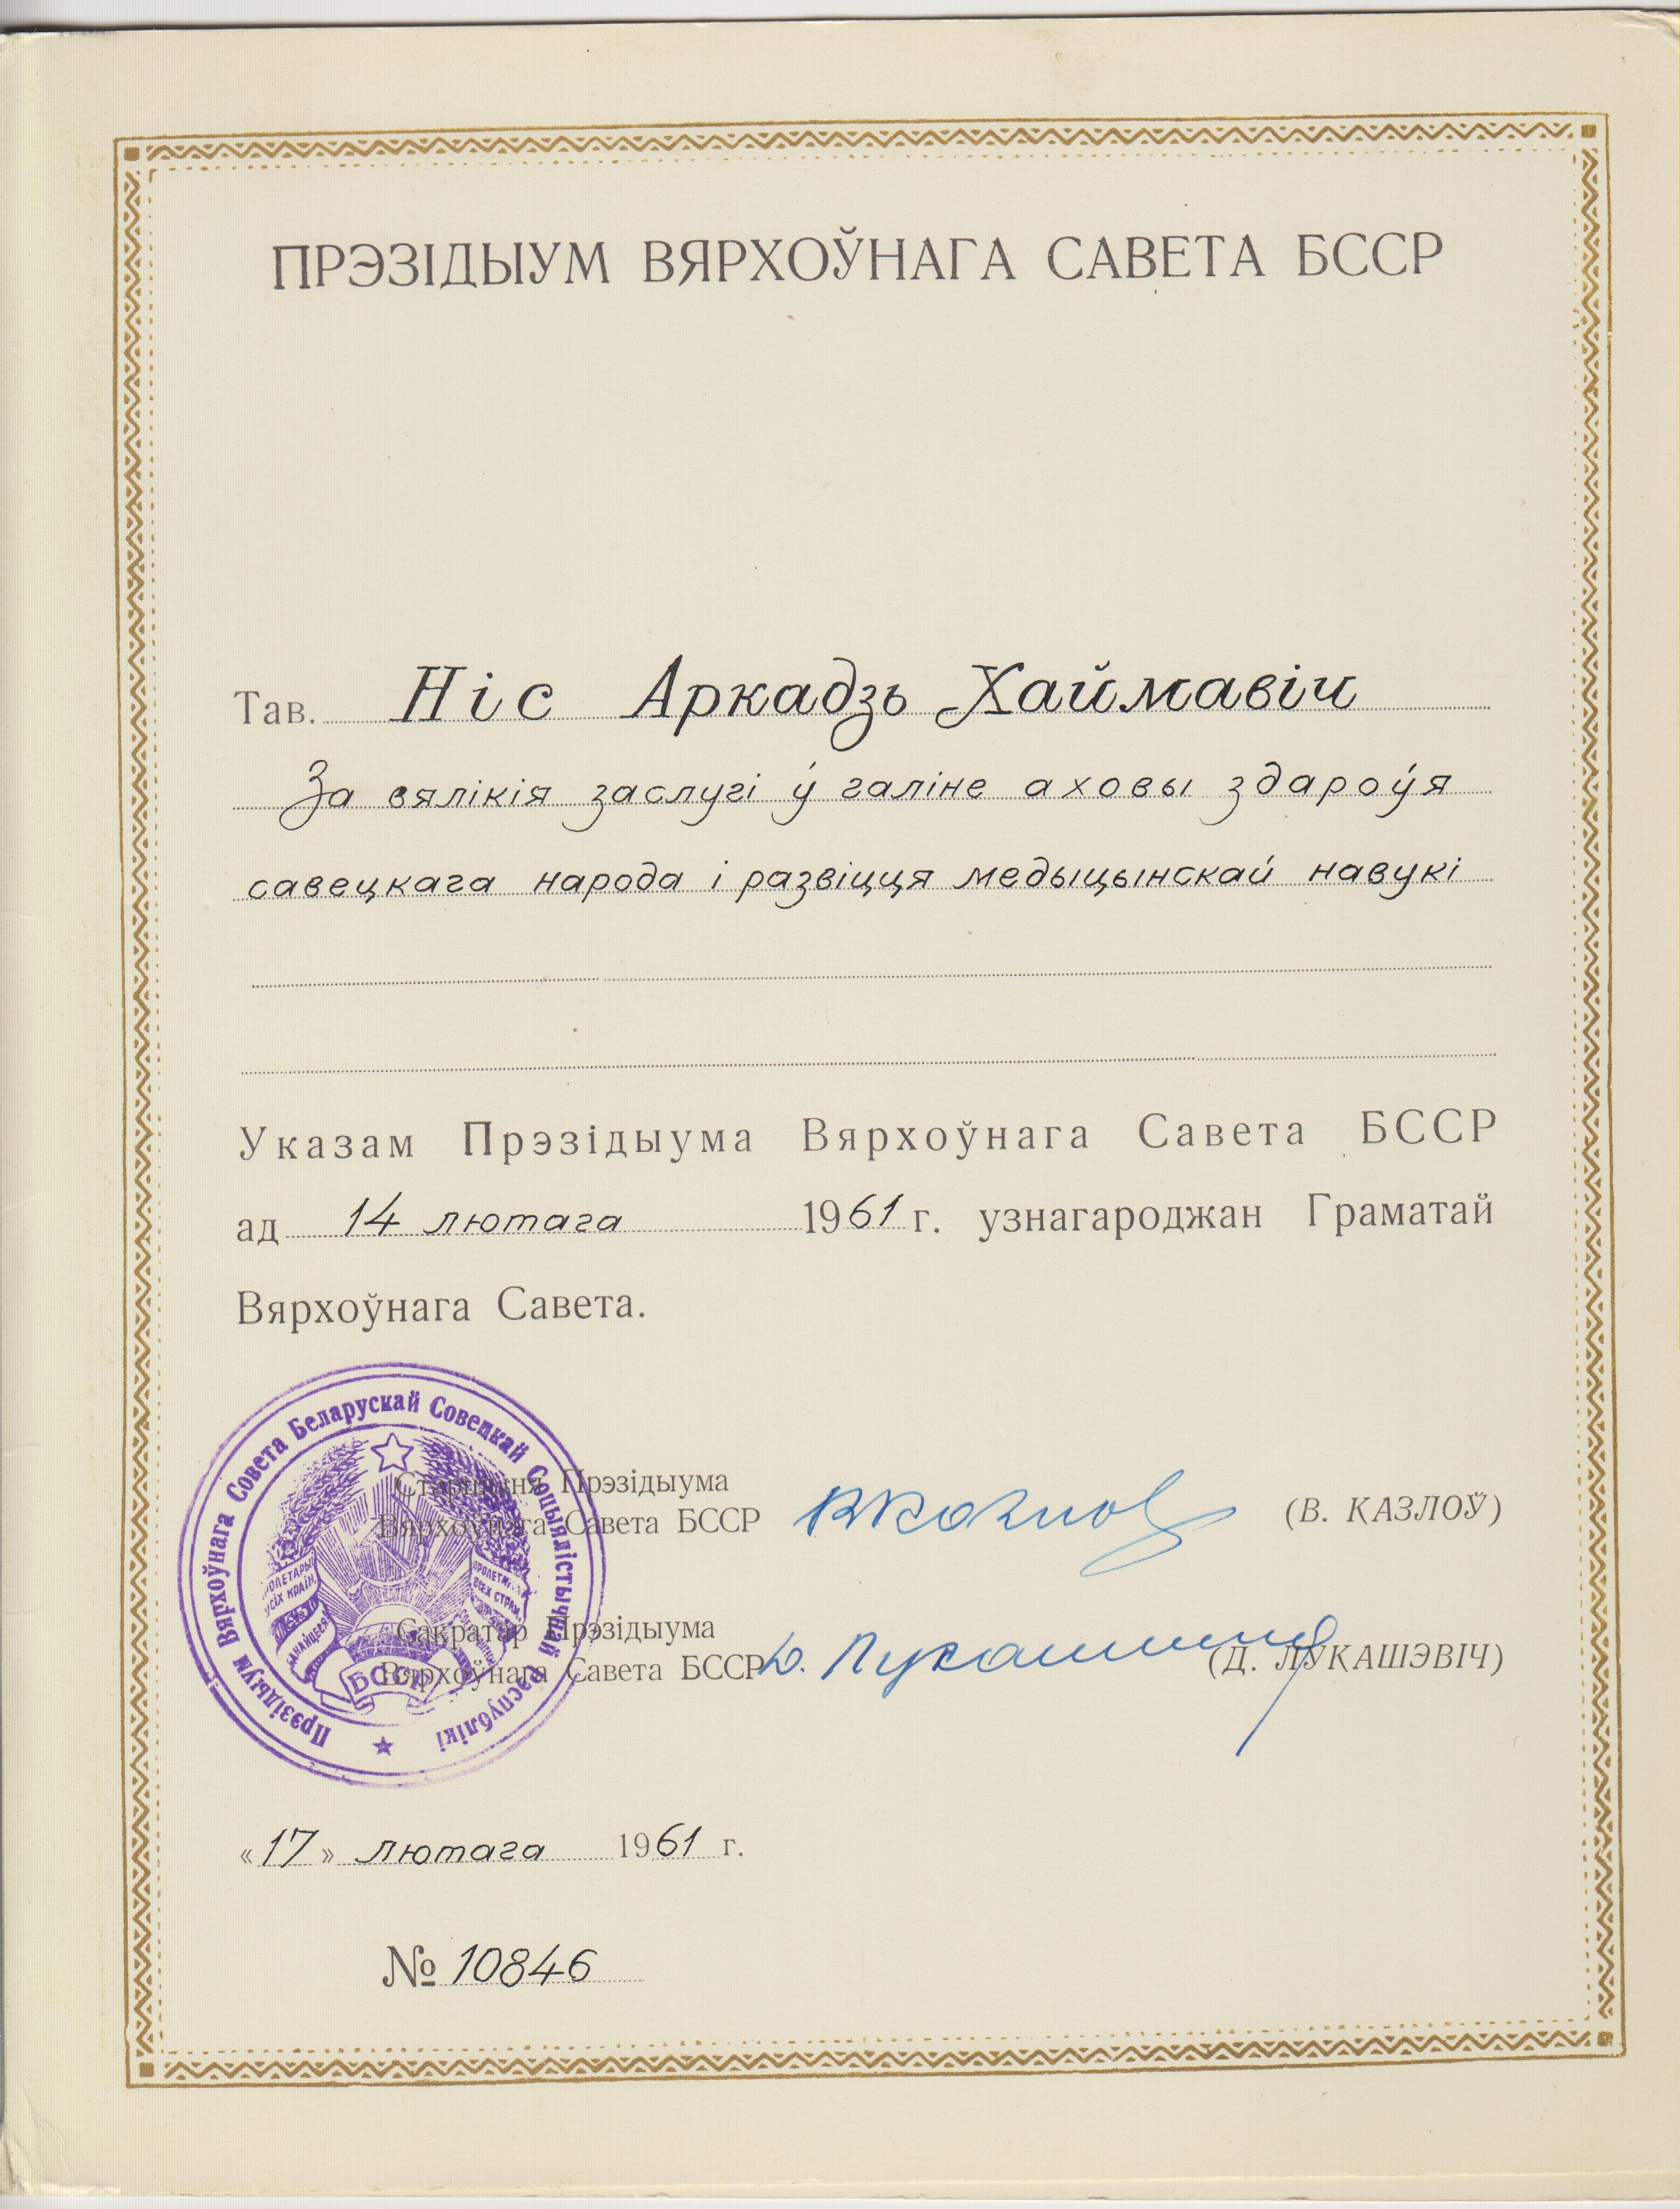 ПРЭЗІДЫУМ ВЯРХОЎНАГА САВЕТА БССР
Тав. Ніс Аркадзь Хаймавіч
За вялікія заслугі ў галіне аховы здароўя
савецкага народа і развіцця медыцынскай навукі
Указам Прэзідыума Вярхоўнага Савета БССР
ад 14 лютага 1961 г. узнагароджан Граматай
Вярхоўнага Савета.
Прэзідыум Вярхоўнага Совета Беларускай Совецкай Соцыялістычнай Рэспублікі
Старшыня Прэзідыума
Вярхоўнага Савета БССР
(В. КАЗЛОЎ)
БССР
Сакратар Прэзідыума
Вярхоўнага Савета БССР
(Д. ЛУКАШЭВІЧ)
«17» лютага 1961 г.
№ 10846